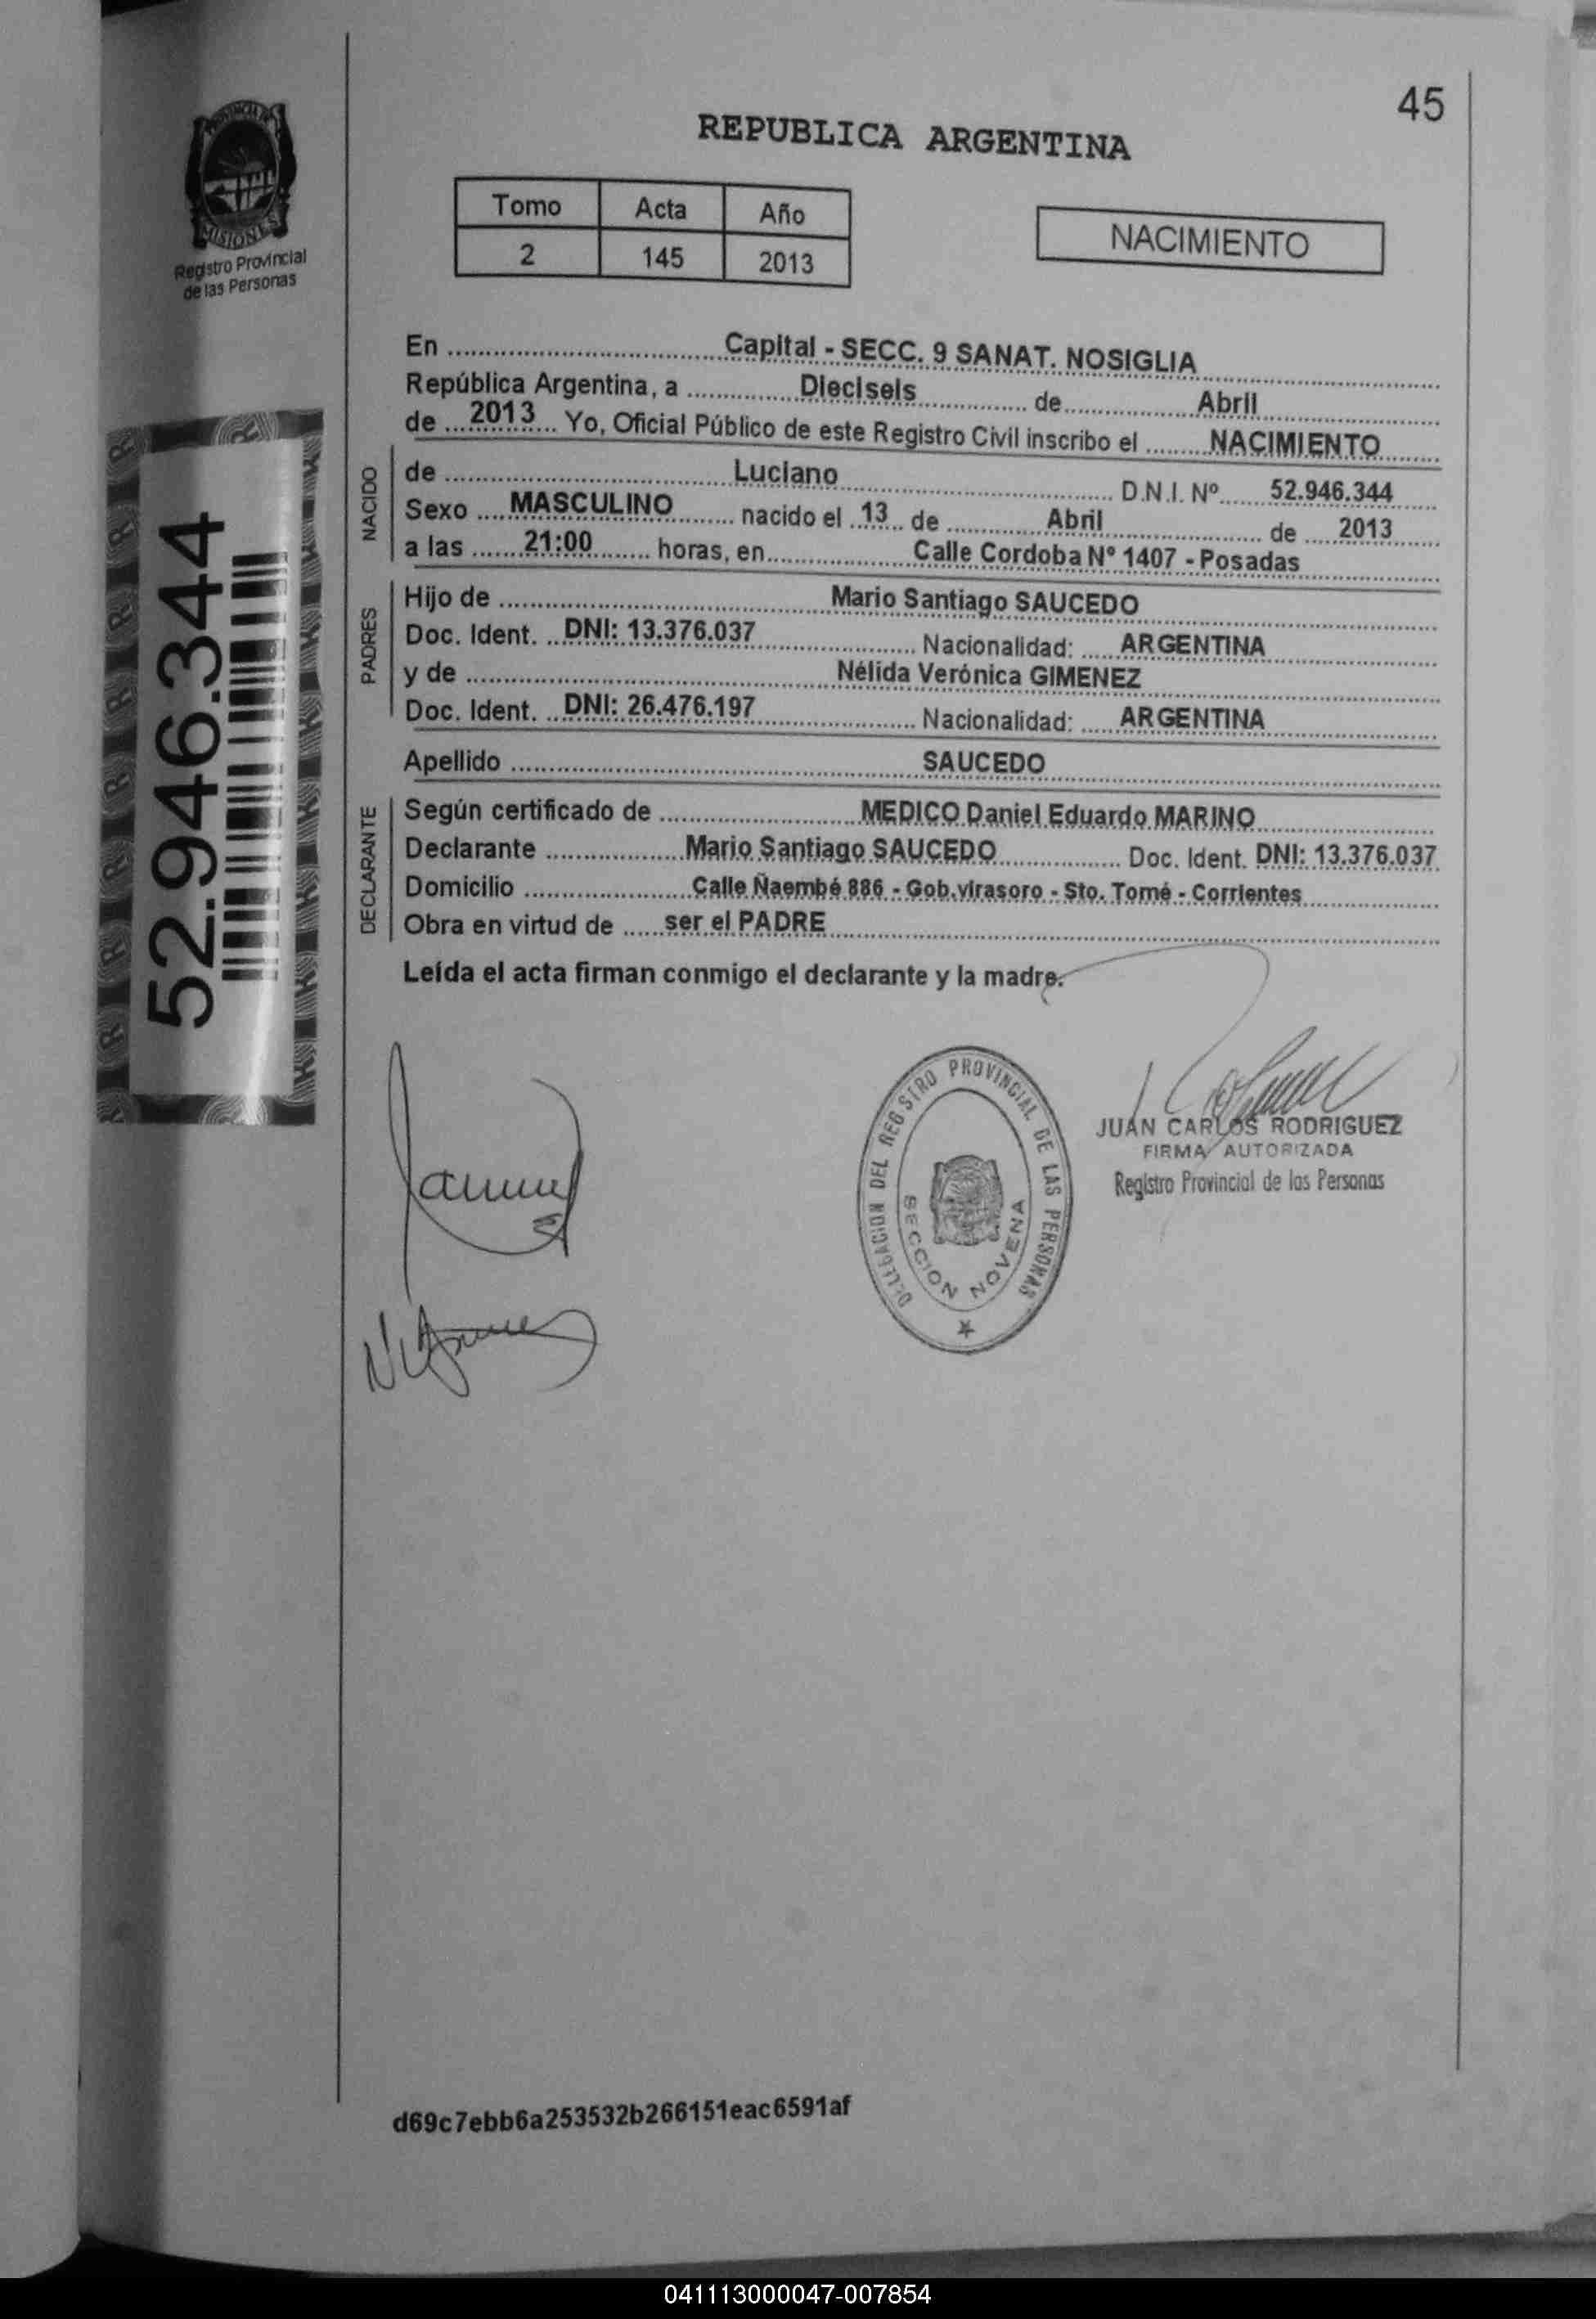 45
REPUBLICA ARGENTINA
PROVINCIA DE
MISIONES
Registro Provincial
de las Personas
Tomo Acta Año
2 145 2013
NACIMIENTO
En ........ Capital - SECC. 9 SANAT. NOSIGLIA ........
República Argentina, a ........ Dieciseis ........ de ........ Abril ........
de .... 2013 ... Yo, Oficial Público de este Registro Civil inscribo el ........ NACIMIENTO ........
NACIDO
de ........ Luciano ........ D.N.I. Nº ...... 52.946.344
Sexo .... MASCULINO ........ nacido el .. 13 .. de ........ Abril ........ de .... 2013 ......
a las ...... 21:00 ........ horas, en ........ Calle Cordoba Nº 1407 - Posadas
PADRES
Hijo de ........ Mario Santiago SAUCEDO ........
Doc. Ident. .. DNI: 13.376.037 ........ Nacionalidad: ..... ARGENTINA ........
y de ........ Nélida Verónica GIMENEZ ........
Doc. Ident. .. DNI: 26.476.197 ........ Nacionalidad: ..... ARGENTINA ........
Apellido ........ SAUCEDO ........
DECLARANTE
Según certificado de ........ MEDICO Daniel Eduardo MARINO ........
Declarante ........ Mario Santiago SAUCEDO ........ Doc. Ident. DNI: 13.376.037
Domicilio ........ Calle Ñaembé 886 - Gob.virasoro - Sto. Tomé - Corrientes ........
Obra en virtud de ...... ser el PADRE ........
Leída el acta firman conmigo el declarante y la madre.
52.946.344
DELEGACION DEL REGISTRO PROVINCIAL DE LAS PERSONAS
SECCION NOVENA
JUAN CARLOS RODRIGUEZ
FIRMA AUTORIZADA
Registro Provincial de las Personas
d69c7ebb6a253532b266151eac6591af
041113000047-007854